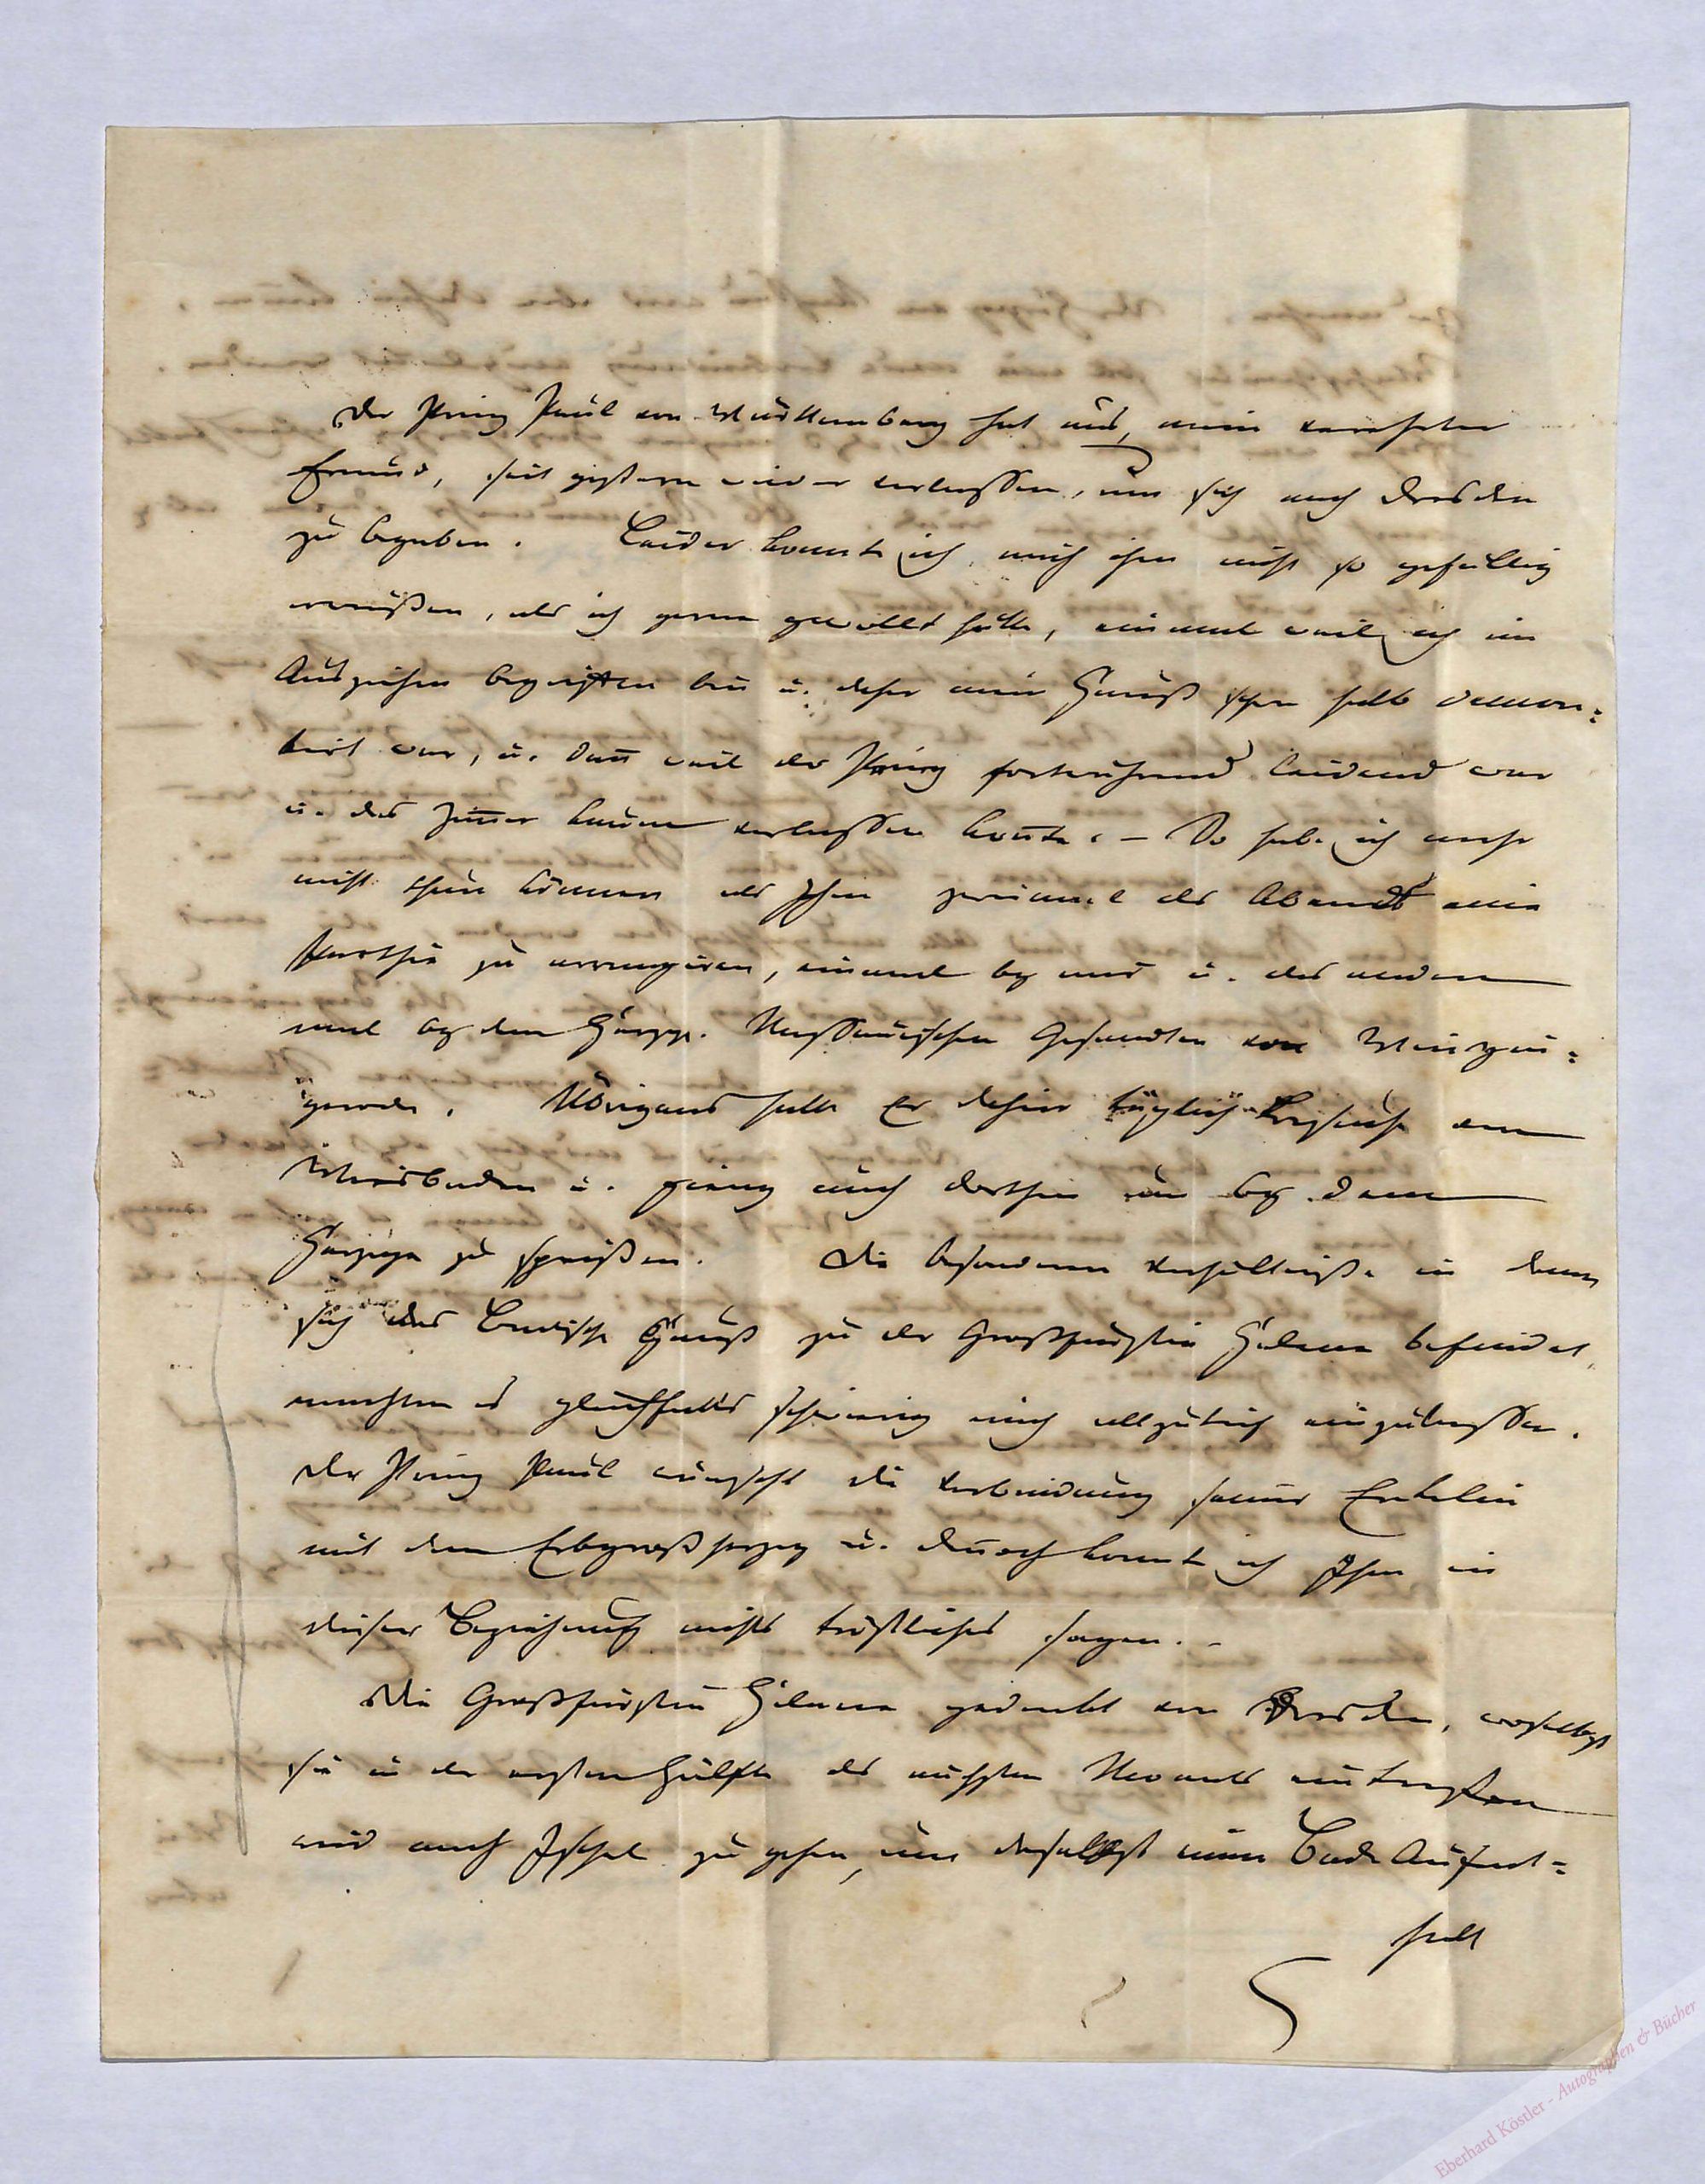 Der Prinz Paul von Württemberg hat uns, mein verehrter
Freund, seit gestern wieder verlassen, um sich nach Dresden
zu begeben. Leider konnte ich mich ihm nicht so gefällig
erweisen, als ich gerne gewollt hätte, einmal weil ich im
Ausziehen begriffen bin u. daher mein Hauß schon halb demon=
tirt war, u. dañ weil der Prinz fortwährend leidend war
u. das Zim̄er kaum verlassen kon̄te. – So habe ich mehr
nicht thun können als Ihm zweimal des Abends eine
Parthie zu arrangiren, einmal bey mir u. das andere
mal bey dem Herzogl. Nassauischen Gesandten von Winzin=
gerode. Übrigens hatte Er dahier täglich Besuche von
Wiesbaden u. gieng auch dorthin um bey dem
Herzoge zu speißen. Die besonderen Verhältniße in denen
sich das Badische Hauß zu der Großfürstin Helene befindet,
machten es gleichfalls schwierig mich allzutief einzulassen.
Der Prinz Paul wünscht die Verbindung seiner Enkelin
mit dem Erbgroßherzog u. dennoch konnte ich Ihm in
dieser Beziehung nichts tröstliches sagen. –
Die Großfürstin Helene gedenkt von Dresden, woselbst
sie in der ersten Hälfte des nächsten Monats eintreffen
wird nach Ischel zu gehen, um daselbst einen Bade Aufent=
halt
Eberhard Köstler - Autographen & Bücher